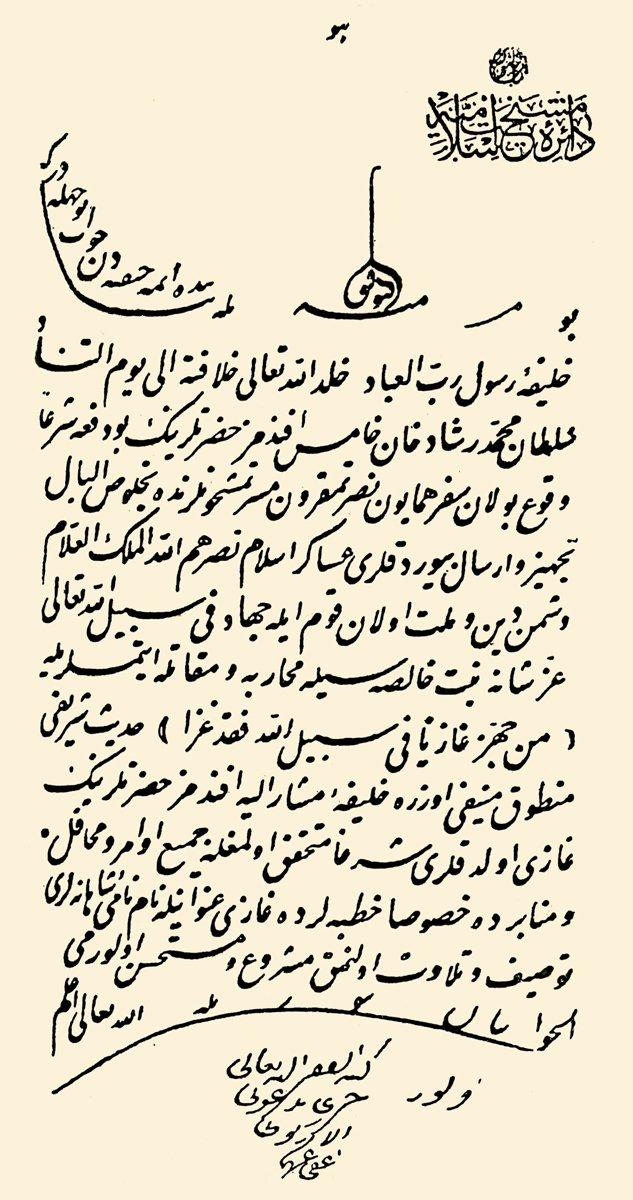 هو
دائرهٔ مشيخت اسلاميه
التوفيق
بو مسئله ده ائمهٔ حنفيه دن جواب نه وجهله در كه
خليفهٔ رسول رب العباد خلد الله تعالى خلافته الى يوم التناد
سلطان محمد رشاد خان خامس افندمز حضرتلرينك بو دفعه شرعا
وقوع بولان سفر همايون نصرتمقرون لرنده بخلوص البال
تجهيز و ارسال بيوردقلرى عساكر اسلام نصرهم الله الملك العلام
دشمن دين و ملت اولان قوم ايله جهاد فى سبيل الله تعالى
عز شانه نيت خالصه سيله محاربه و مقاتله ايتمسيله
( من جهز غازيا فى سبيل الله فقد غزا ) حديث شريفى
منطوق منيفى اوزره خليفهٔ مشار اليه افندمز حضرتلرينك
غازى اولدقلرى شرعا متحقق اولمغله جميع اوامر و محافل
و منابرده خصوصا خطبه لرده غازى عنوانيله نام نامئ شاهانه لرى
توصيف و تلاوت اولنمق مشروع و مستحسن اولورمى
الجواب الله تعالى اعلم
اولور
كتبه الفقير اليه تعالى
خيرى بن عونى
الاركوبى
عفى عنهما